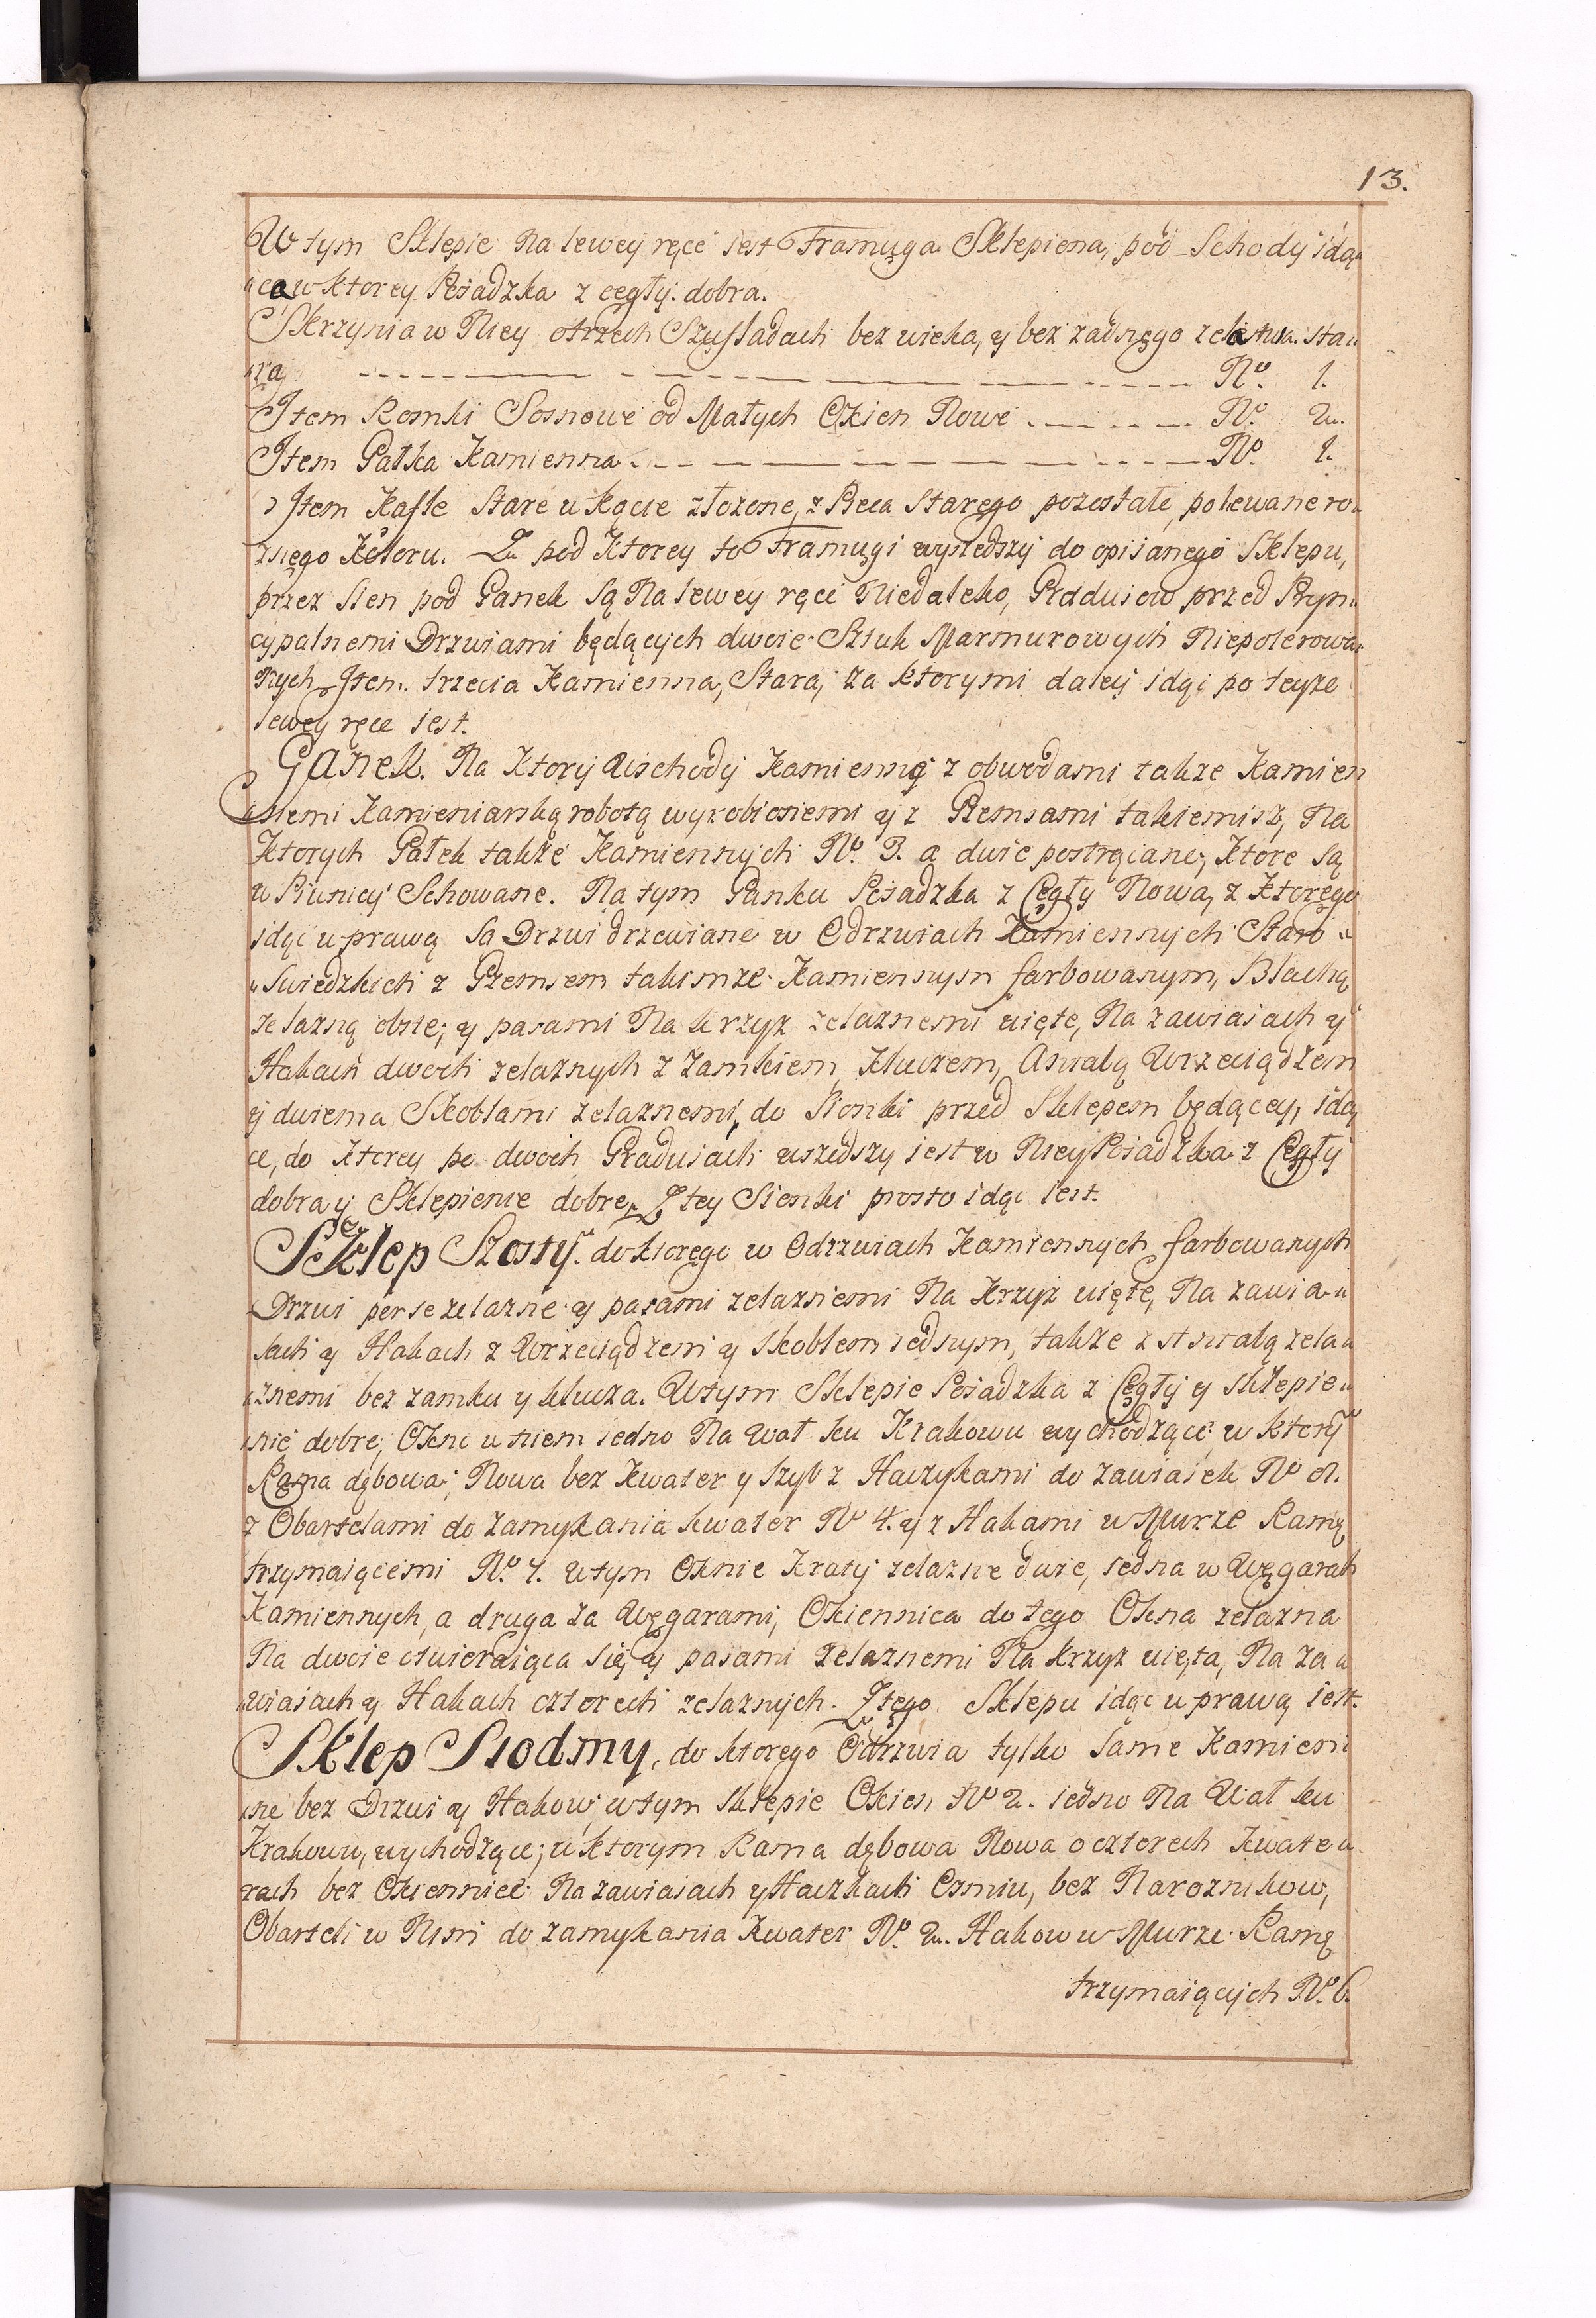 13.
W tym Sklepie Na lewey ręce iest Framuga Sklepiona, pod Schody idą„
„ca w ktorey Posadzka z cegły dobra.
Skrzynia w Niey o trzech Szufladach bez wieka, y bez zadnego zelastwa sta„
„ra --- N⁰. 1.
Item Ramki Sosnowe od Małych Okien Nowe --- N⁰. 2.
Item Gałka Kamienna --- N⁰. 1.
Item Kafle Stare w kącie złozone, z Pieca Starego pozostałe, polewane ro„
znego Koloru. Z pod Ktorey to Framugi wyszedszy do opisanego Sklepu,
przez Sien pod Ganek są Na lewey ręce Niedaleko, Gradusow przed Pryn„
cypalnemi Drzwiami będących dwoie Sztuk Marmurowych Niepolerowa„
Nych Item trzecia Kamienna, Stara, za ktorymi daley idąc po teyze
lewey ręce iest.
Ganek. Na Ktory Wschody Kamienne z obwodami takze Kamien
„nemi Kamieniarską robotą wyrobionemi y z Gzemsami takiemisz, Na
Ktorych Gałek takze Kamiennych N⁰. 3. a dwie postrącane, Ktore są
w Piwnicy Schowane. Na tym Ganku Posadzka z Cegły Nowa, z Ktorego
idąc w prawą są Drzwi drzewiane w Odrzwiach Kamiennych Staro„
„Swiedzkich z Gzemsem takimze Kamiennym farbowanym, Blachą
zelazną obite, y pasami Na krzyz zelaznemi uięte, Na zawiasach y
Hakach dwoch zelaznych z Zamkiem, Kluczem, Antabą Wrzeciądzem
y dwiema Skoblami zelaznemi, do Sionki przed Sklepem będącey, idą
ce, do Ktorey po dwoch Gradusach wszedszy iest w Niey Posadzka z Cegły
dobra y Sklepienie dobre, Z tey Sienki prosto idąc iest.
Sklep Szosty. do ktorego w Odrzwiach Kamiennych farbowanych
Drzwi per se zelazne y pasami zelaznemi Na Krzyz uięte, Na zawia„
sach y Hakach z Wrzeciądzem y skoblem iednym, takze z Antabą zela„
„znemi bez zamku y klucza. W tym Sklepie Posadzka z Cegły y sklepie„
„nie dobre, Okno w niem iedno Na Wał ku Krakowu wychodzące, w ktory
Rama dębowa, Nowa bez Kwater y szyb z Haczykami do zawiasek N⁰
z Obartelami do zamykania kwater N⁰ 4. y z Hakami w Murze Ramę
trzymaiącemi N⁰. 7. W tym Oknie Kraty zelazne dwie, iedna w Węgarach
Kamiennych, a druga za Węgarami, Okiennica do tego Okna zelazna
Na dwoie otwieraiąca się, y pasami zelaznemi Na krzyz uięta, Na za„
„wiasach y Hakach czterech zelaznych. Z tego Sklepu idąc w prawą iest.
Sklep Siodmy, do ktorego Odrzwia tylko same Kamien„
„ne bez Drzwi y Hakow, w tym sklepie Okien N⁰ 2. iedno Na Wał ku
Krakowu, wychodzące, w ktorym Rama dębowa Nowa o czterech Kwate„
rach bez Okiennic Na zawiasach y Haczkach Osmiu, bez Naroznikow,
Obartli w Nim do zamykania Kwater N⁰. 2. Hakow w Murze Ramę
trzymaiących N⁰. 6.